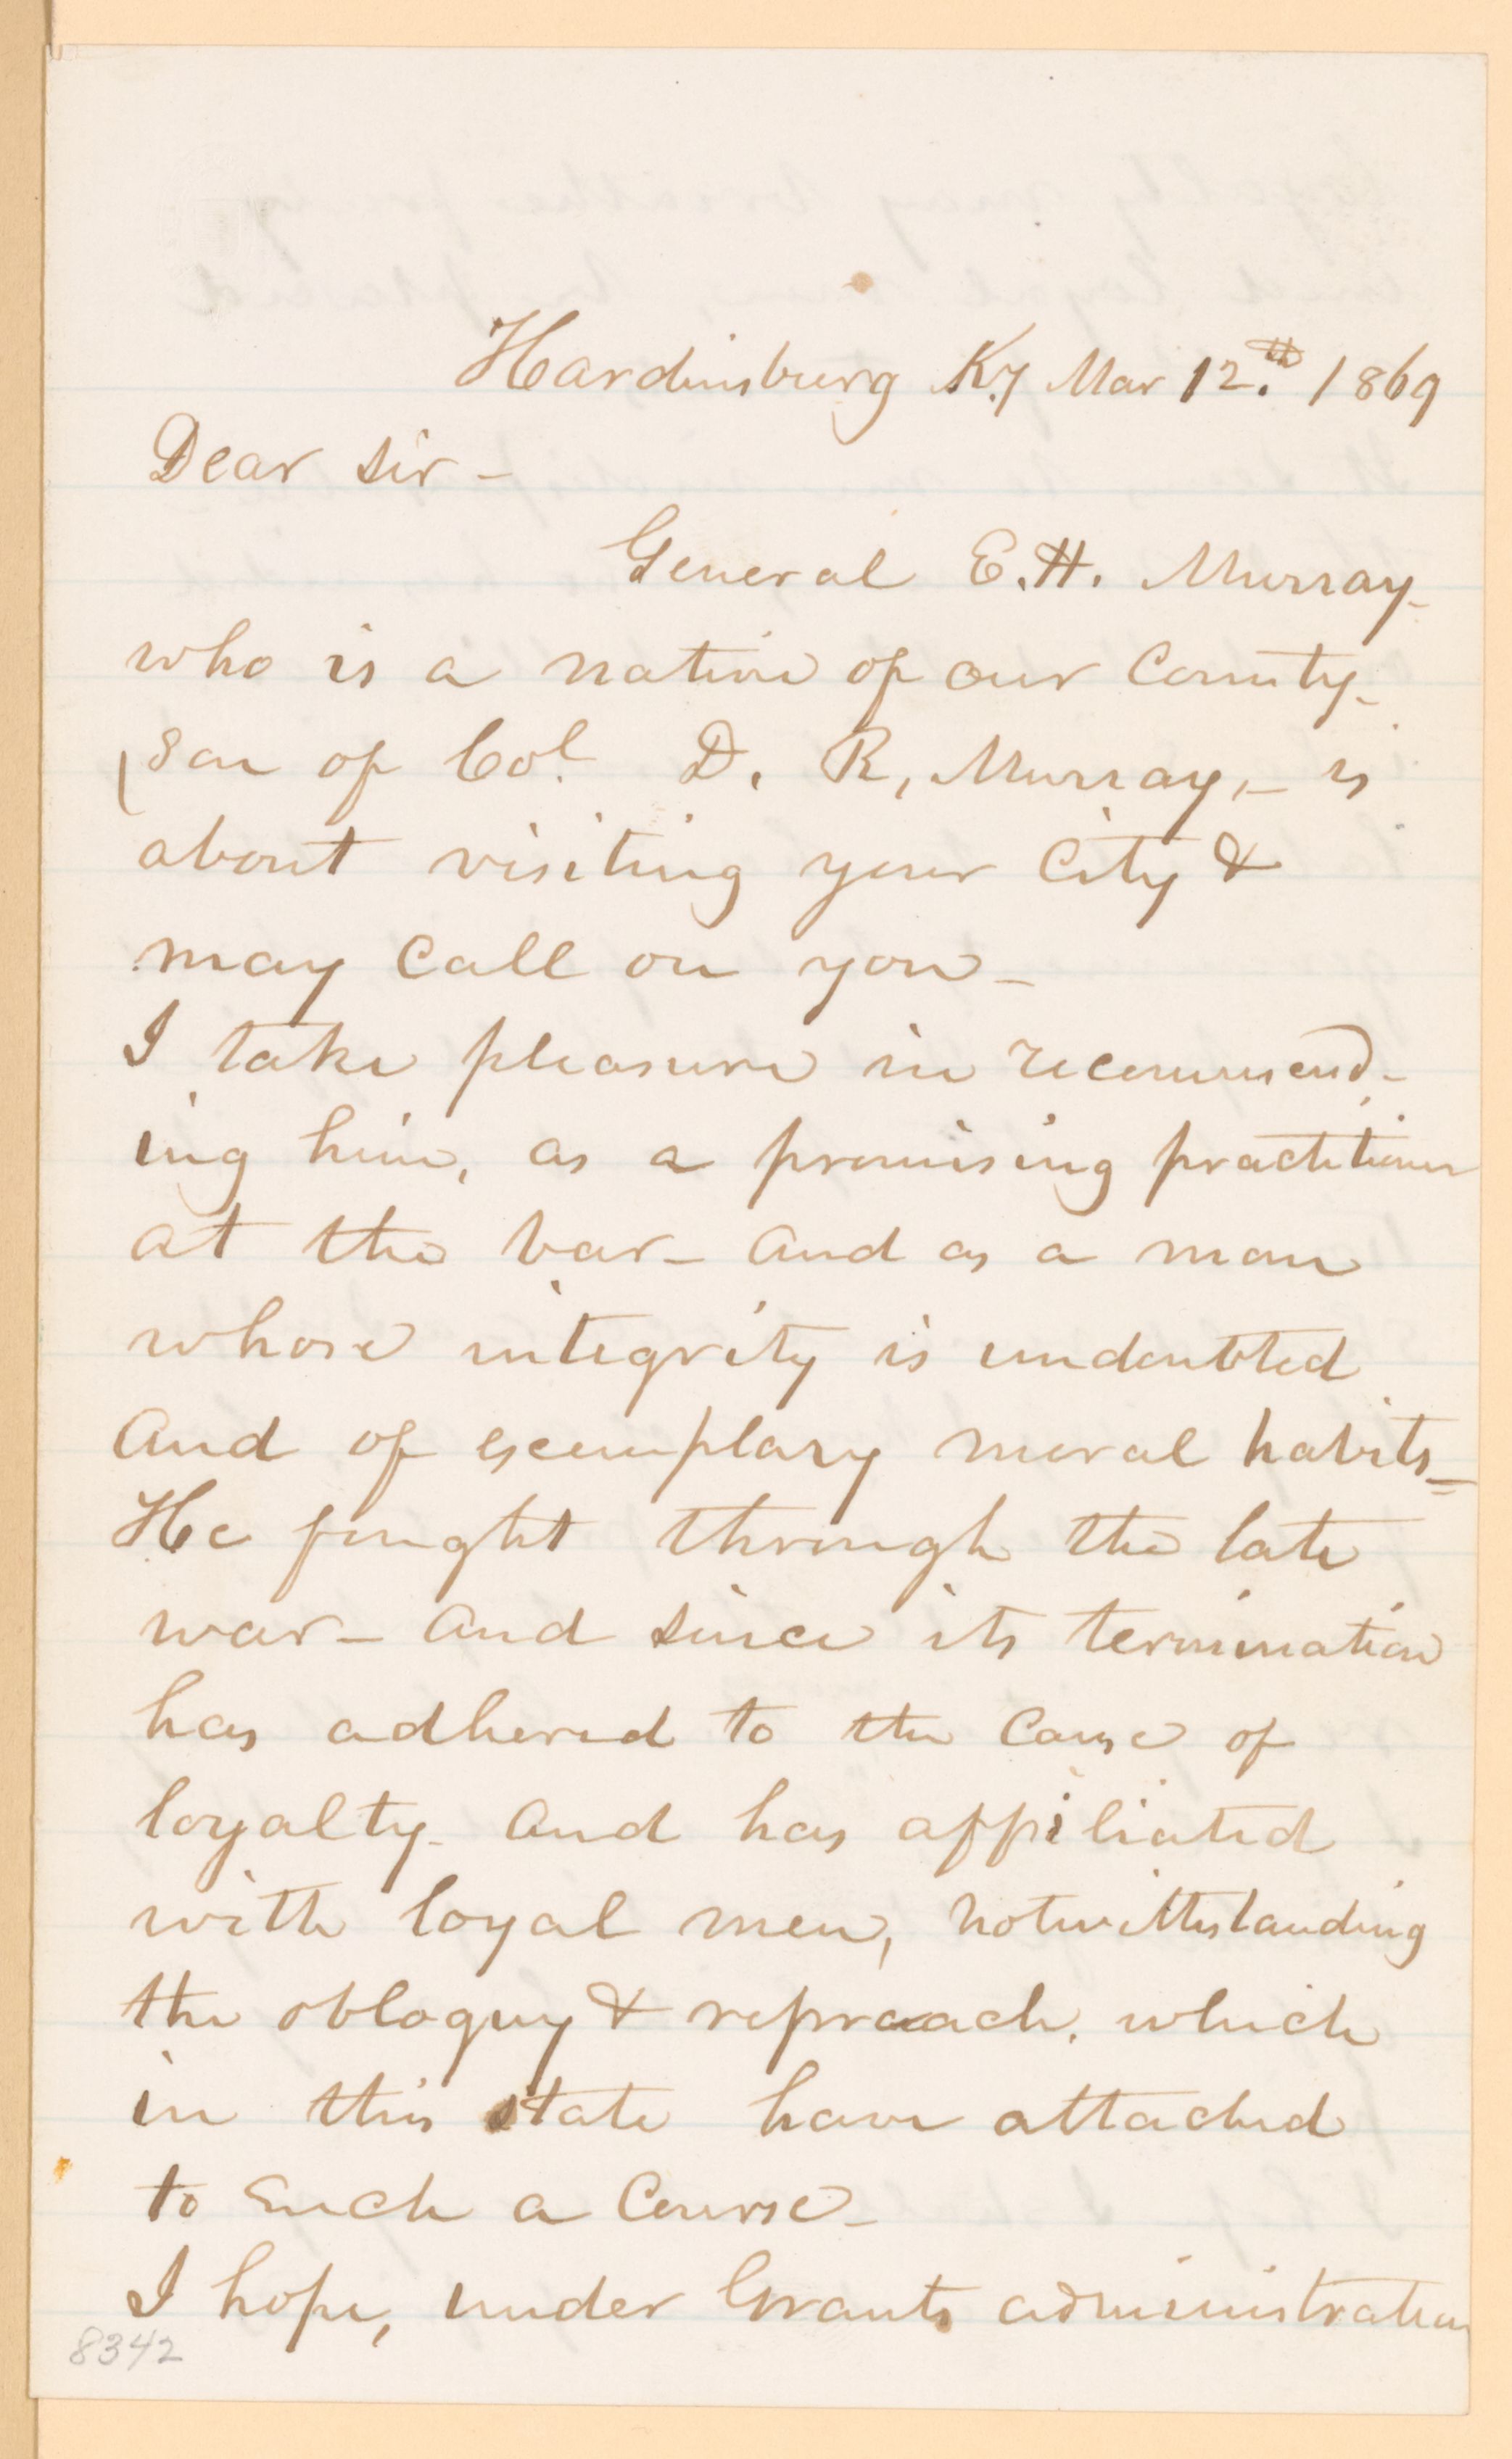 Hardinsburg Ky Mar 12.th 1869
Dear Sir -
General E. H. Murray -
who is a native of our County -
(Son of Col. D. R, Murray, - is
about visiting your City &
may Call on you -
I take pleasure in recommend -
ing him, as a promising practitioner
at the bar - And as a man
whose integrity is undoubted
And of exemplary moral habits -
He fought through the late
war - And since its termination
has adhered to the Cause of
loyalty - And has affiliated
with loyal men, notwithstanding
the obloquy & reproach, which
in this state have attached
to Such a Course -
I hope, under Grants administration
8342